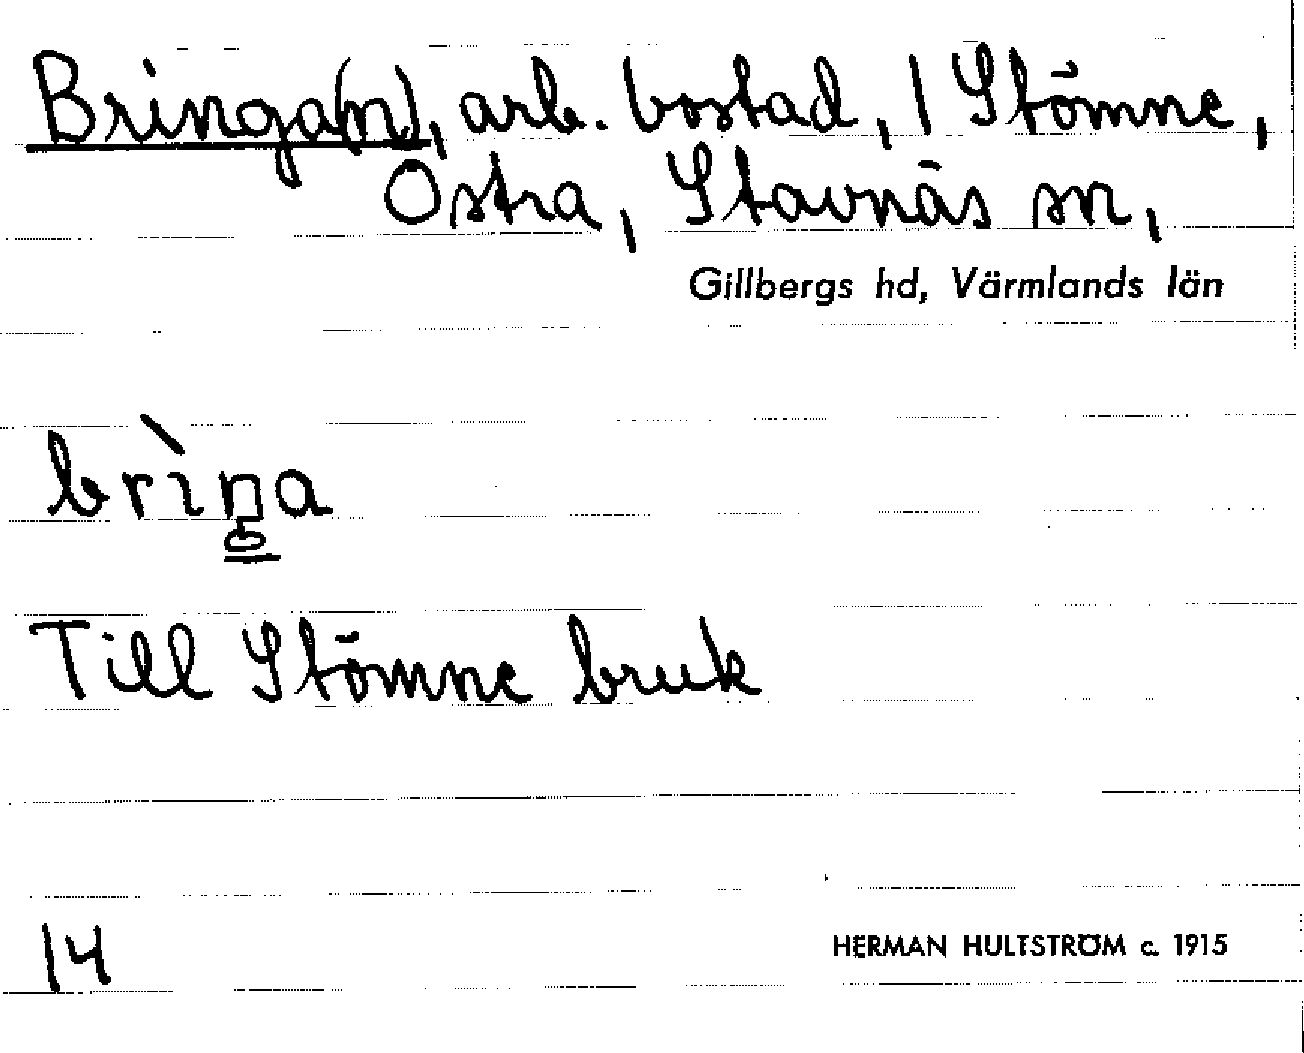 Bringa(n), arb. bostad, 1 Stömne,
Östra, Stavnäs sn,
Gillbergs hd, Värmlands län
brìŋa
Till Stömne bruk
14
HERMAN HULTSTRÖM c. 1915